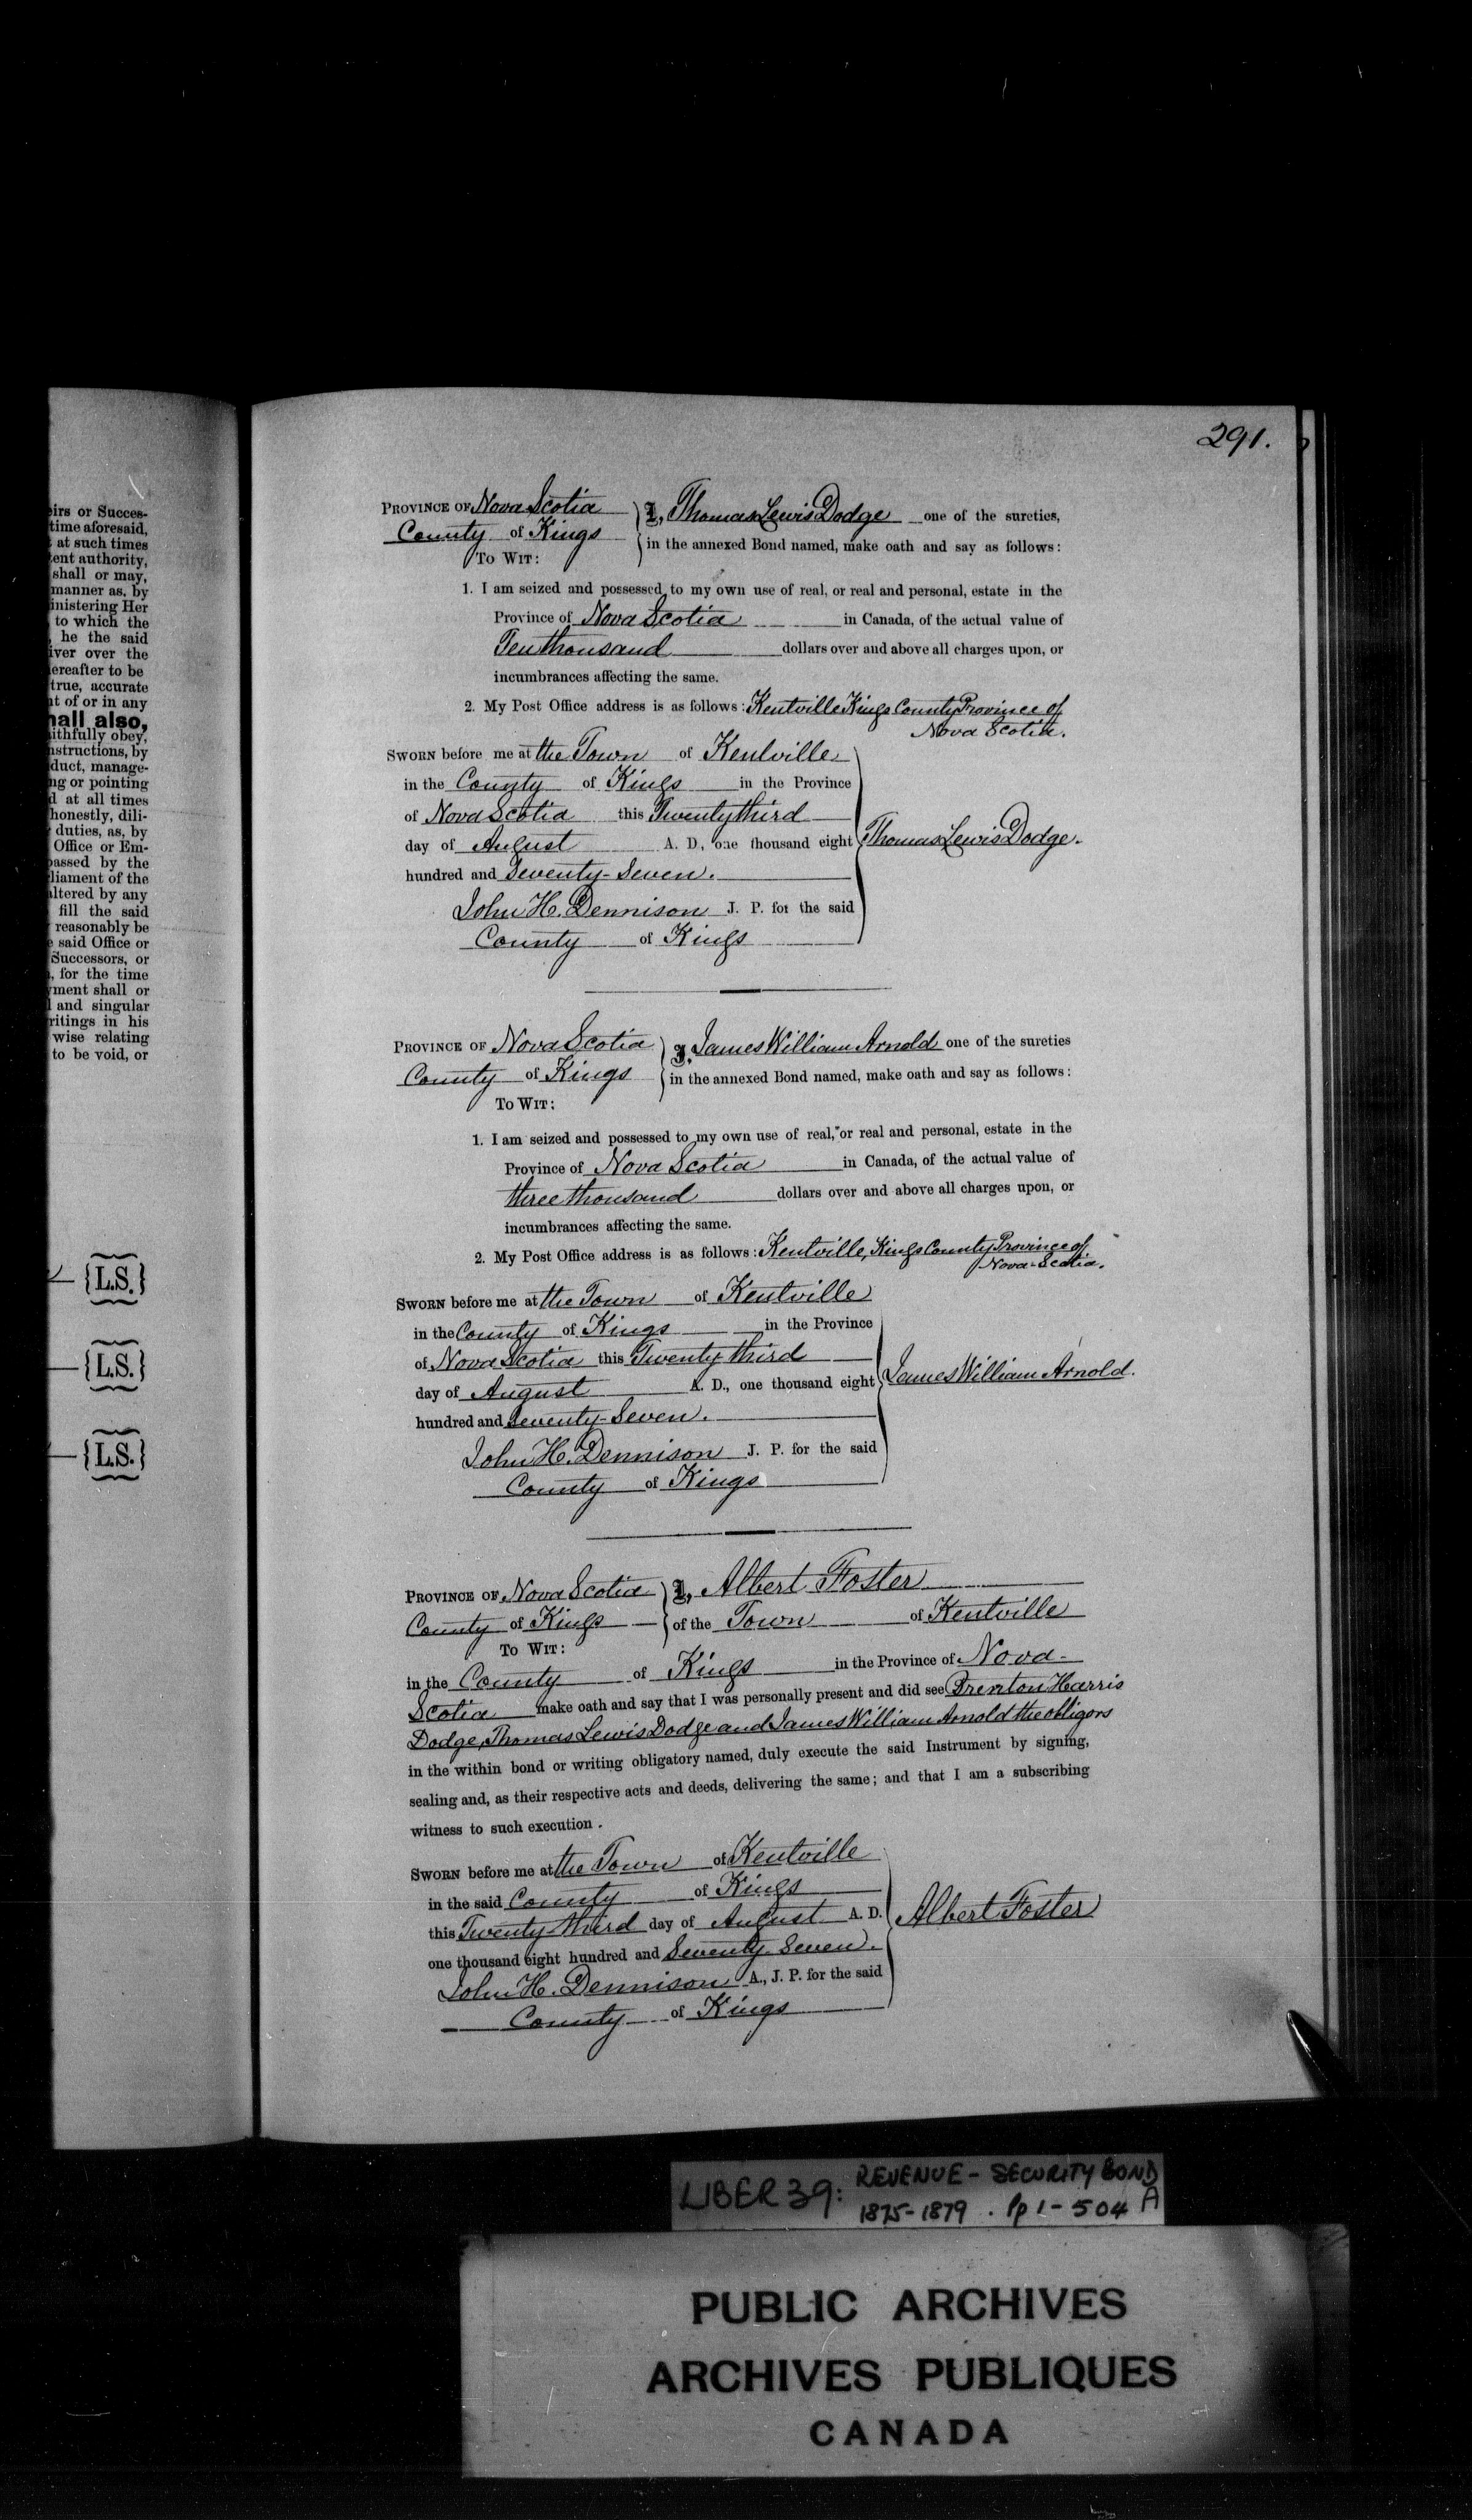 irs or Succes-
time aforesaid,
at such times
ent authority,
shall or may,
manner as, by
inistering Her
to which the
, he the said
iver over the
ereafter to be
true, accurate
t of or in any
hall also,
ithfully obey,
nstructions, by
duct, manage-
ng or pointing
d at all times
honestly, dili-
duties, as, by
Office or Em-
passed by the
liament of the
altered by any
fill the said
reasonably be
e said Office or
Successors, or
, for the time
yment shall or
l and singular
ritings in his
wise relating
to be void, or
{L.S.}
{L.S.}
{L.S.}
291.
PROVINCE OF Nova Scotia } I, Thomas Lewis Dodge one of the sureties,
County of Kings { in the annexed Bond named, make oath and say as follows:
TO WIT:
1. I am seized and possessed to my own use of real, or real and personal, estate in the
Province of Nova Scotia in Canada, of the actual value of
Ten thousand dollars over and above all charges upon, or
incumbrances affecting the same.
2. My Post Office address is as follows: Kentville Kings County Province of
Nova Scotia.
SWORN before me at the Town of Kentville
in the County of Kings in the Province
of Nova Scotia this Twenty third
day of August A. D., one thousand eight Thomas Lewis Dodge.
hundred and Seventy-Seven.
John H. Dennison J. P. for the said
County of Kings
PROVINCE OF Nova Scotia } I, James William Arnold one of the sureties
County of Kings { in the annexed Bond named, make oath and say as follows:
TO WIT:
1. I am seized and possessed to my own use of real, or real and personal, estate in the
Province of Nova Scotia in Canada, of the actual value of
three thousand dollars over and above all charges upon, or
incumbrances affecting the same.
2. My Post Office address is as follows: Kentville, Kings County Province of
Nova-Scotia.
SWORN before me at the Town of Kentville
in the County of Kings in the Province
of Nova Scotia this Twenty third
day of August A. D., one thousand eight James William Arnold.
hundred and Seventy-Seven.
John H. Dennison J. P. for the said
County of Kings
PROVINCE OF Nova Scotia } I, Albert Foster
County of Kings { of the Town of Kentville
TO WIT:
in the County of Kings in the Province of Nova-
Scotia make oath and say that I was personally present and did see Brenton Harris
Dodge, Thomas Lewis Dodge and James William Arnold the obligors
in the within bond or writing obligatory named, duly execute the said Instrument by signing,
sealing and, as their respective acts and deeds, delivering the same; and that I am a subscribing
witness to such execution.
SWORN before me at the Town of Kentville
in the said County of Kings
this Twenty third day of August A. D. Albert Foster
one thousand eight hundred and Seventy-Seven.
John H. Dennison A., J. P. for the said
County of Kings
LIBER 39: REVENUE - SECURITY BOND
1875-1879 . Pp 1-504 A
PUBLIC ARCHIVES
ARCHIVES PUBLIQUES
CANADA